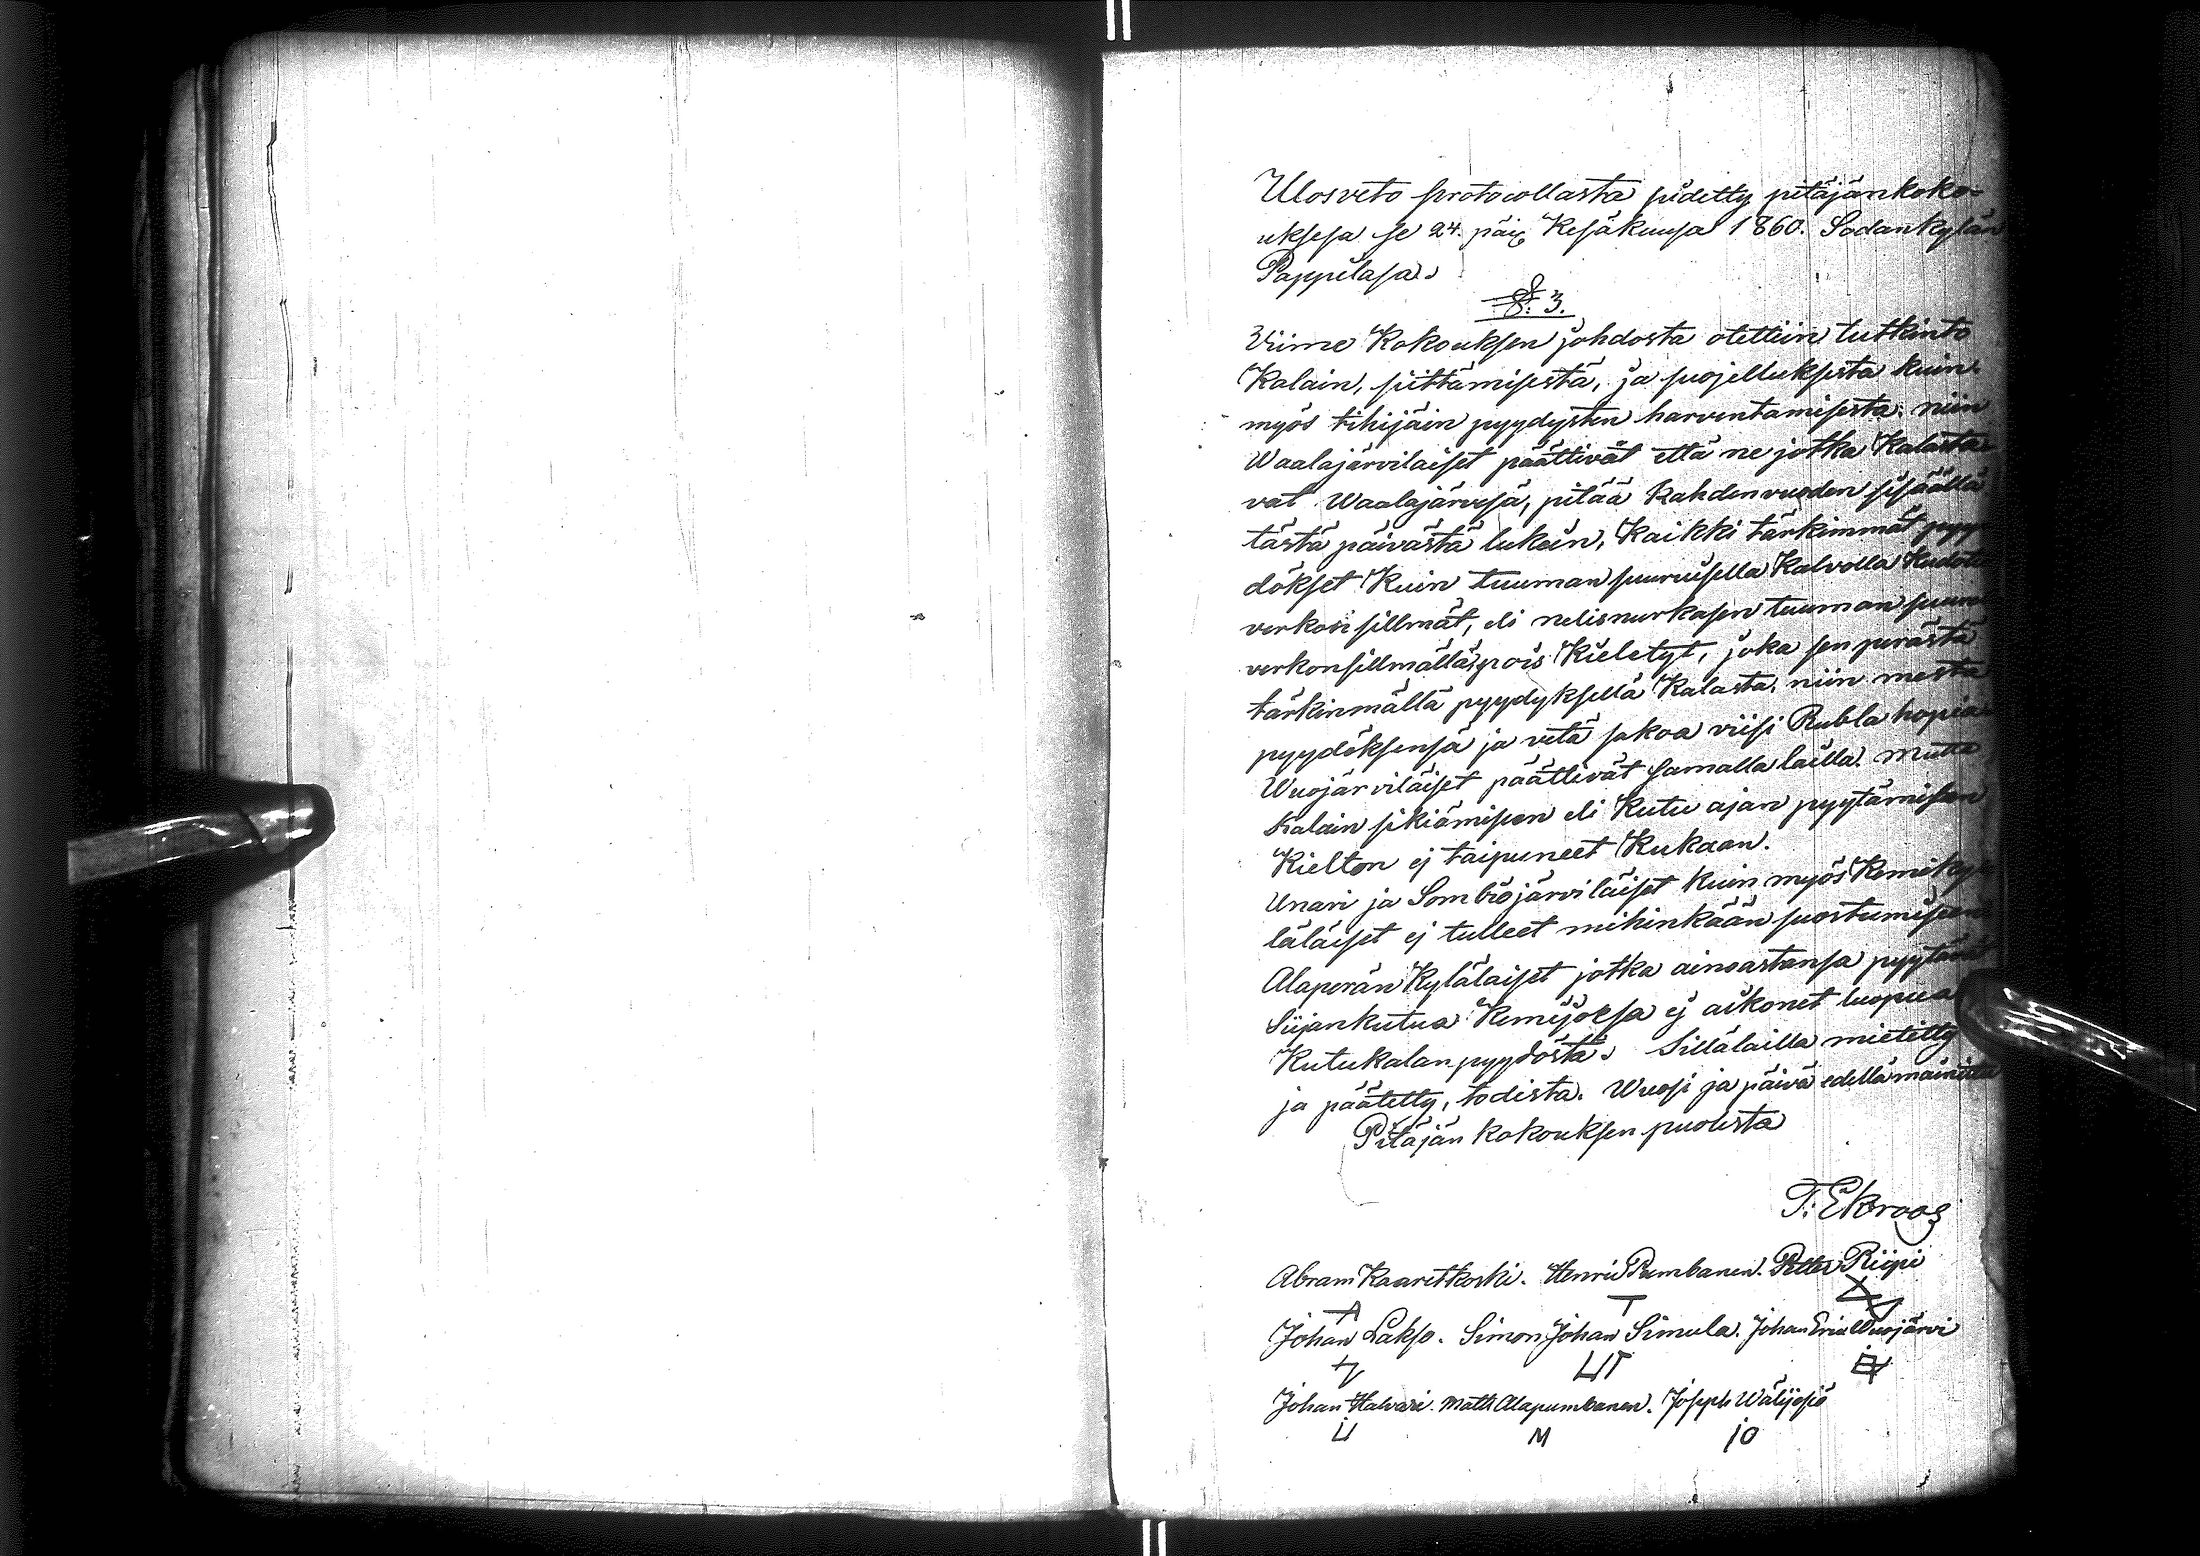 Ulosveto protocollasta pidetty pitäjänkoko-
uksesa se 24. päiv Kesäkuusa 1860. Sodankylän
Pappilasa.
§. 3.
Viime Kokouksen johdosta otettiin tutkinto
Kalain, siittämisestä, ja suojelluksesta kuin
myös tihijäin pyydysten harventamisesta: niin
Waalajärviläiset päättivät että ne jotka Kalasta-
vat Waalajärvesä, pitää kahdenvuoden sisäällä
tästä päivästä lukein, Kaikki tärkimmät pyy
dökset Kuin tuuman suuruisella Kalvolla Kudotu
verkon sillmät, eli neliснurkasen tuuman suure
verkonsillmällä, pois Kieletyt, joka sen perästä
tärkinmällä pyydyksellä Kalasta, niin mesta
pyydöksensä ja vetä sakoa viisi Rubla hopia
Wuojärviläiset päättivät samalla lailla. Mutta
Kalain sikiämisen eli Kutu ajan pyytämisen
Kielton ej taipuneet Kukaan.
Unari ja Sombiojärviläiset Kuin myös Kemiky
läläiset ej tulleet mihinkään suostumiseen
Alaperän Kyläläiset jotka ainoastansa pyytävä
Siijankutua Kemijoesa ej aikonet luopua
Kutukalan pyydöstä. Sillälailla mietitty
ja päätetty, todista. Wuosi ja päivä edellämainittu
Pitäjän Kokouksen puolesta
T. Ekroos
Abram Kaaretkoski. Henric Pumbanen. Petter Riipi
A T
Johan Lakso. Simon Johan Simula. Johan Eric Wuojärvi
Johan Halvari. Matts Alapumbanen. Joseph Wälijesiö
M JO